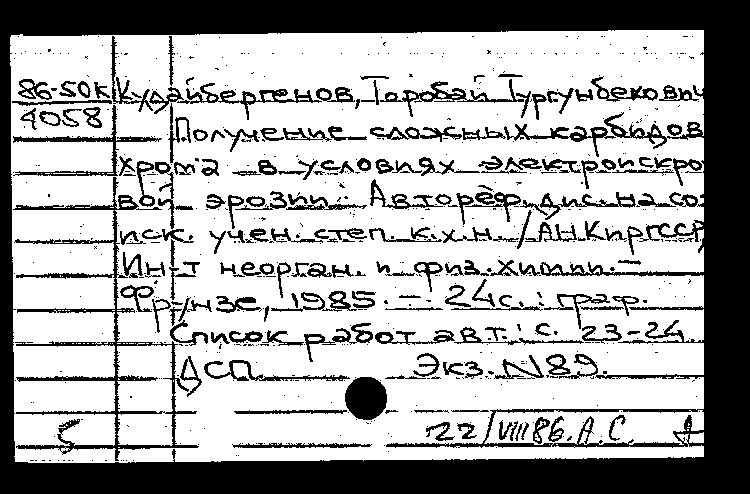 86-50к Кудайбергенов, Торобай Тургунбекович
4058
Получение сложных карбидов
хрома в условиях электроискро-
вой эрозии: Автореф. дис. на со-
иск. учен. степ. к.х.н. / АН КиргССР,
Ин-т неорган. и физ. химии. –
Фрунзе, 1985. – 24с. : граф.
Список работ авт.: с. 23-24
ДСП Экз. N89.
5 22/VIII86. А.С.